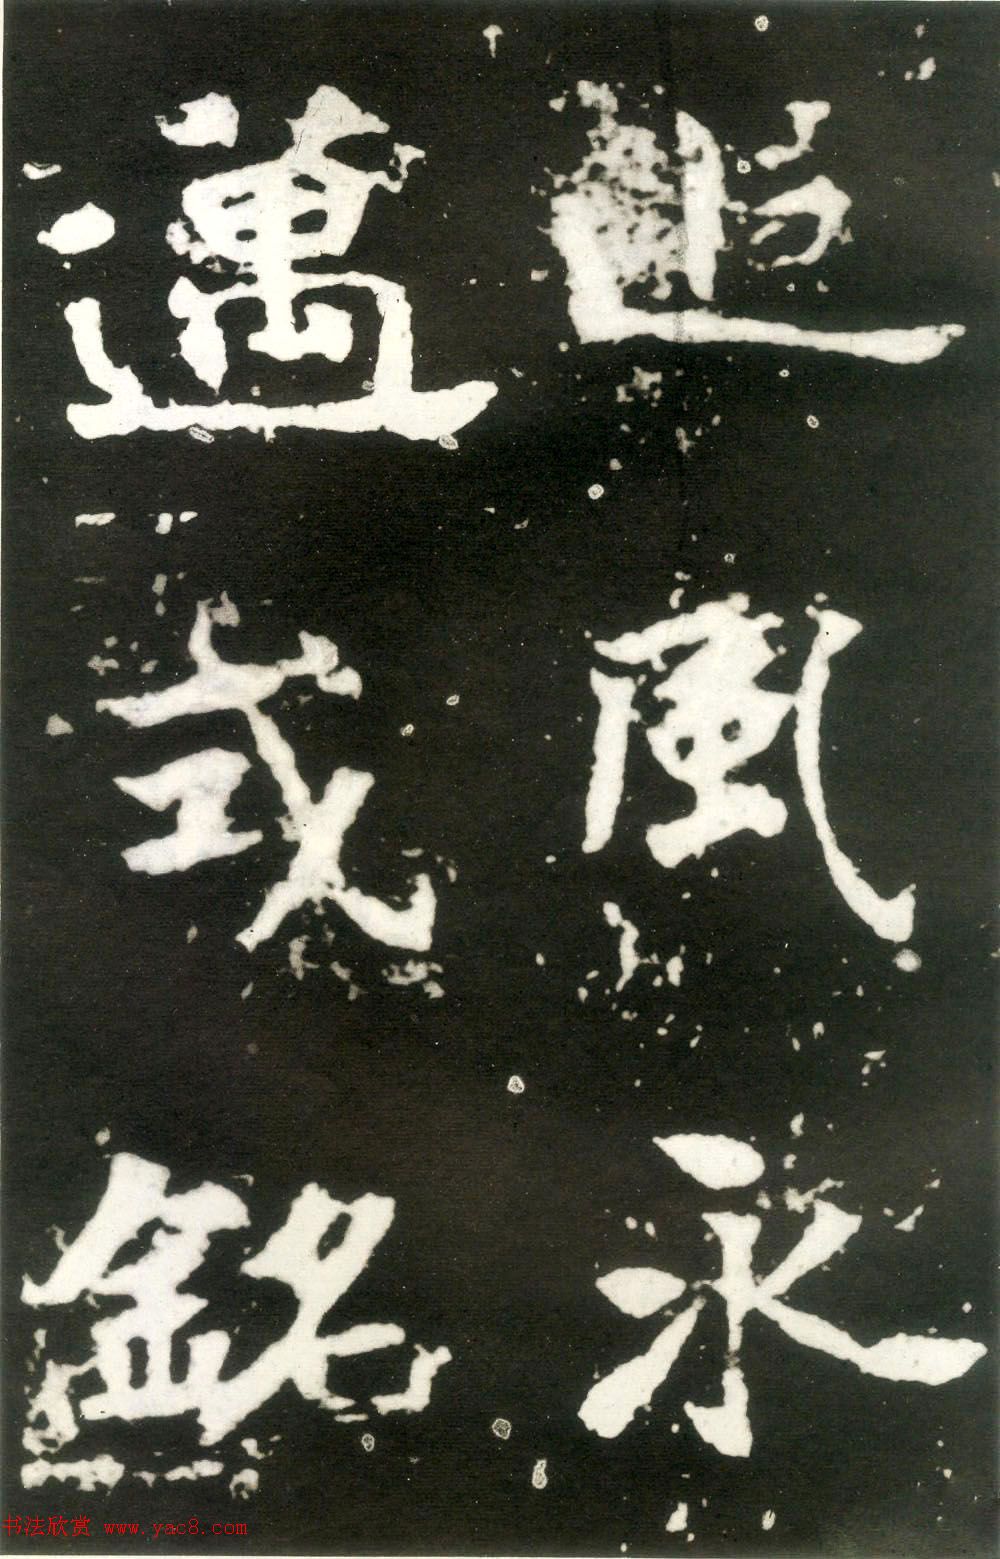 風永
邁式銘
书法欣赏 www.yac8.com